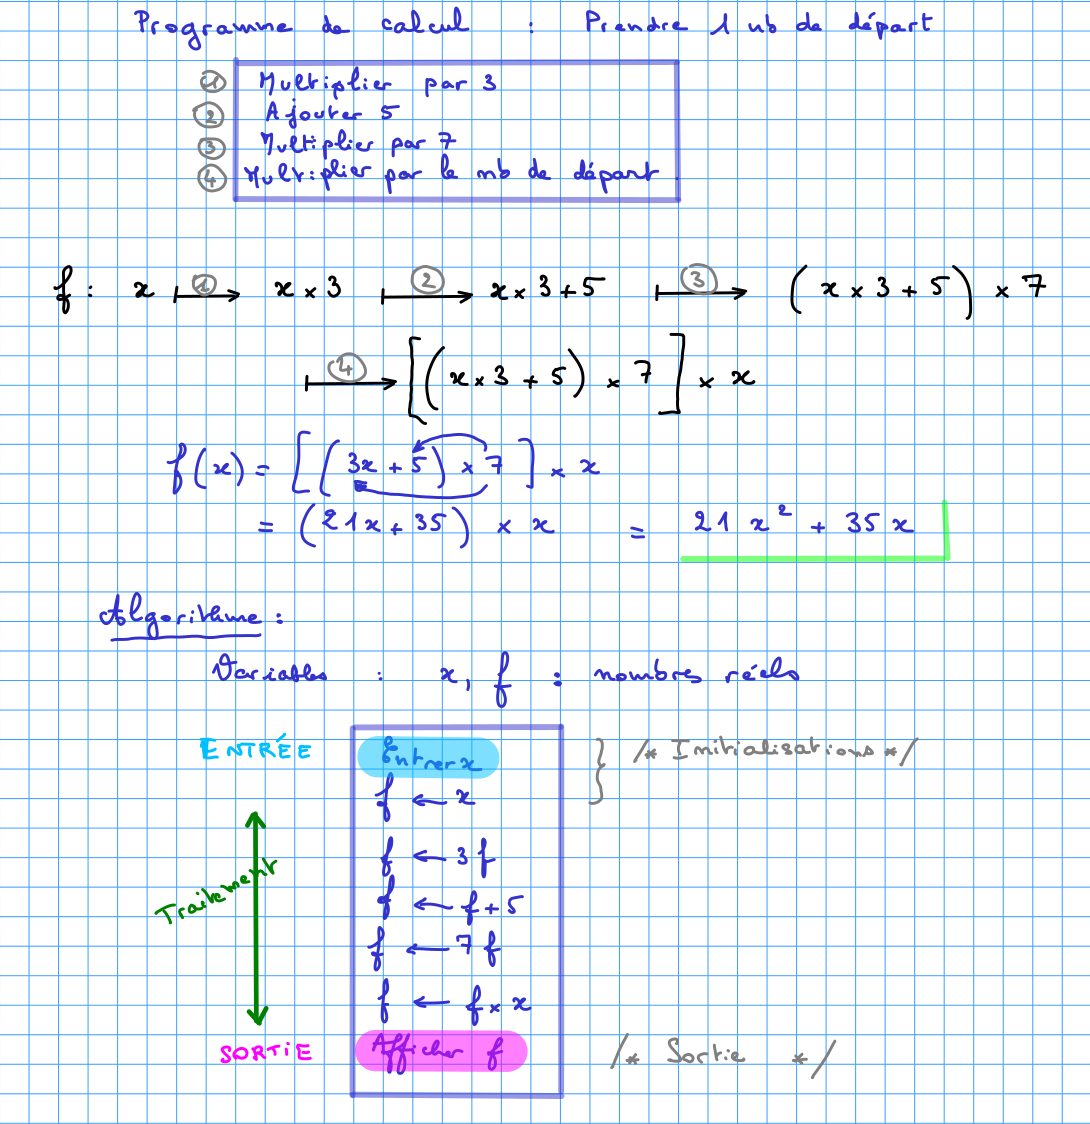 Programme de calcul : Prendre 1 nb de départ
① Multiplier par 3
② Ajouter 5
③ Multiplier par 7
④ Multiplier par le nb de départ
f : x ⟼ ① x × 3 ⟼ ② x × 3 + 5 ⟼ ③ (x × 3 + 5) × 7
⟼ ④ [(x × 3 + 5) × 7] × x
f(x) = [(3x + 5) × 7] × x
= (21x + 35) × x = 21x² + 35x
Algorithme :
Variables : x, f : nombres réels
ENTRÉE Entrer x } /* Initialisations */
f ← x
f ← 3f
Traitement f ← f + 5
f ← 7f
f ← f × x
SORTIE Afficher f /* Sortie */